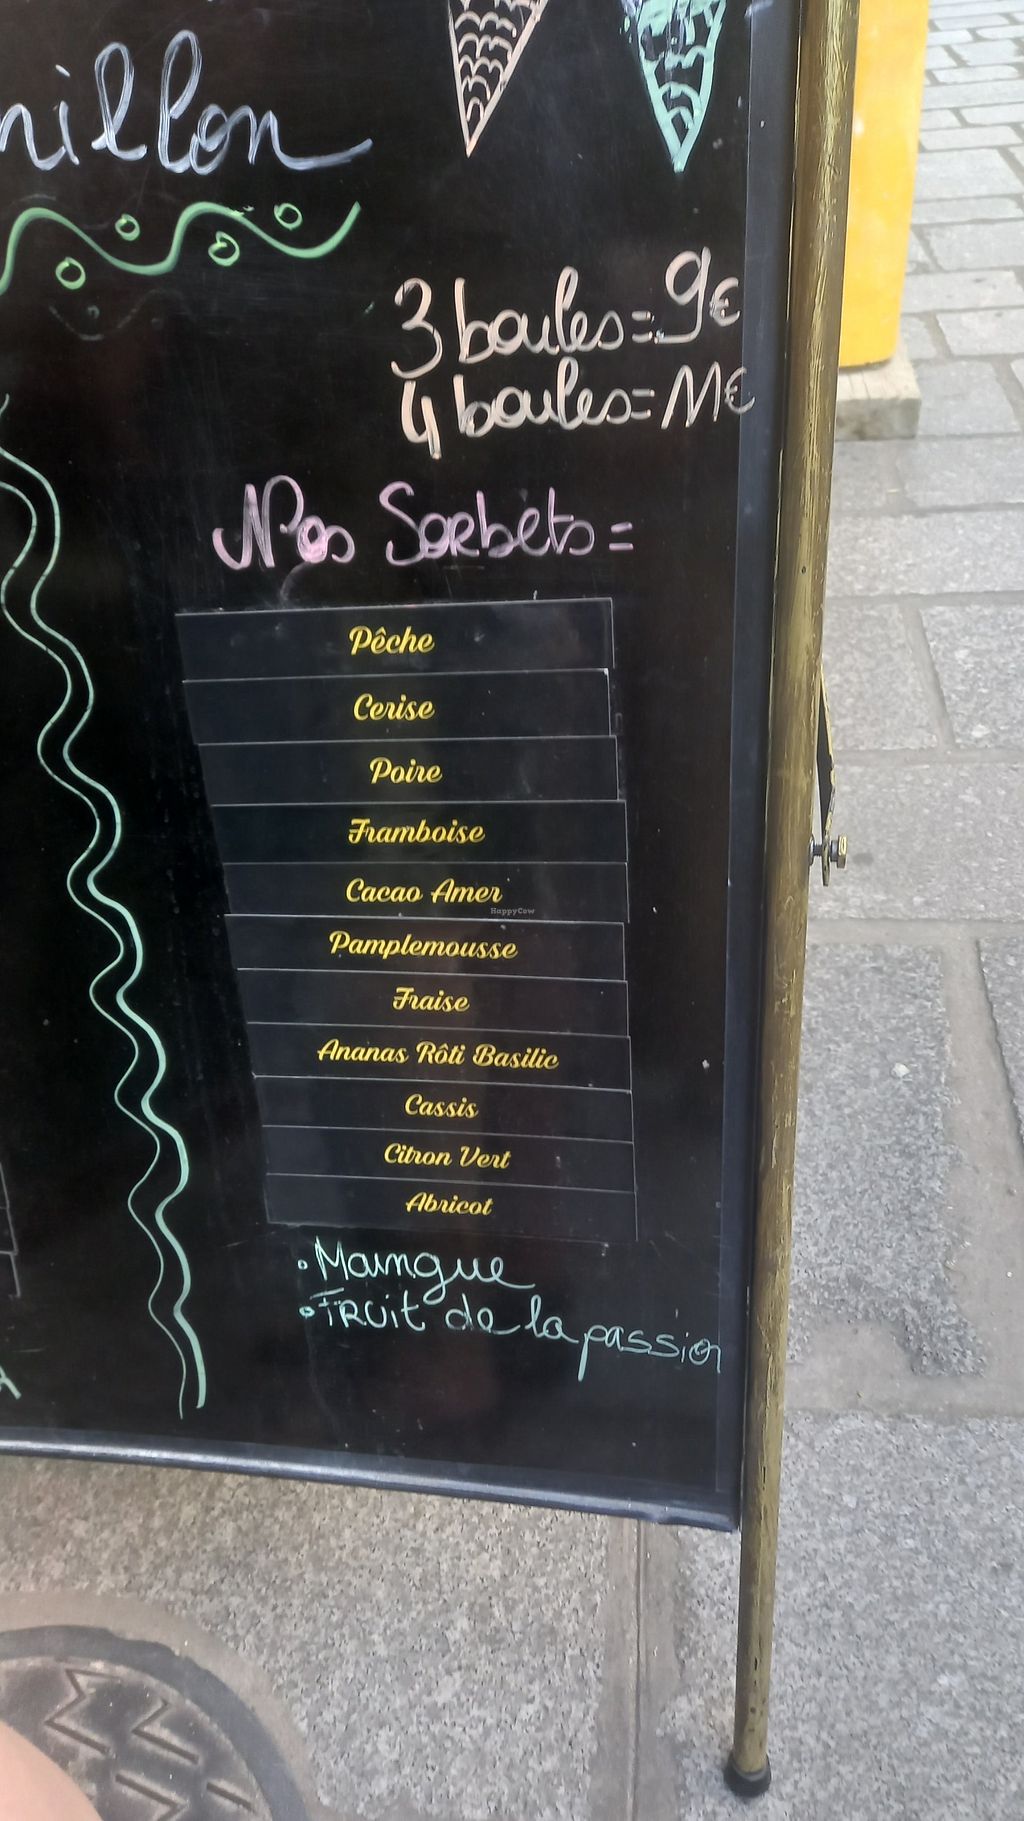 3 boules = 9€
4 boules = 11€
Nos Sorbets =
Pêche
Cerise
Poire
Framboise
Cacao Amer
HappyCow
Pamplemousse
Fraise
Ananas Rôti Basilic
Cassis
Citron Vert
Abricot
• Mangue
• Fruit de la passion